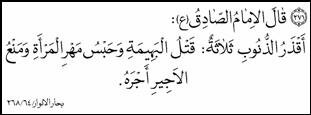 (٢٧١) قَالَ الإِمَامُ الصَّادِقُ (ع):
أَقْذَرُ الذُّنُوبِ ثَلاَثَةٌ: قَتْلُ الْبَهِيمَةِ وَحَبْسُ مَهْرِ الْمَرْأَةِ وَمَنْعُ
الأَجِيرِ أَجْرَهُ.
بحار الانوار/٦٤/٢٦٨